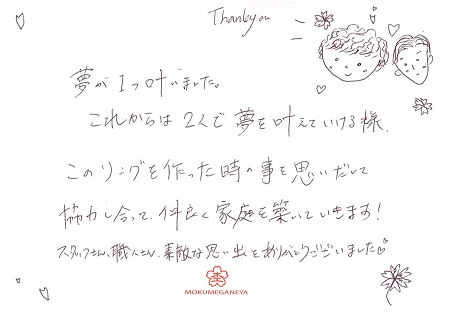 Thank you
夢が1つ叶いました。
これからは2人で夢を叶えていける様、
このリングを作った時の事を思いだして
協力し合って、仲良く家庭を築いていきます!
スタッフさん、職人さん、素敵な思い出をありがとうございました
MOKUMEGANEYA